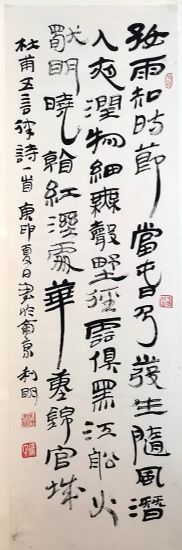 好雨知時節當春乃發生隨風潛
入夜潤物細無聲野徑雲俱黑江舩火
獨明曉看紅溼處華重錦官城
杜甫五言律詩一首 庚寅夏日書於南京 利明